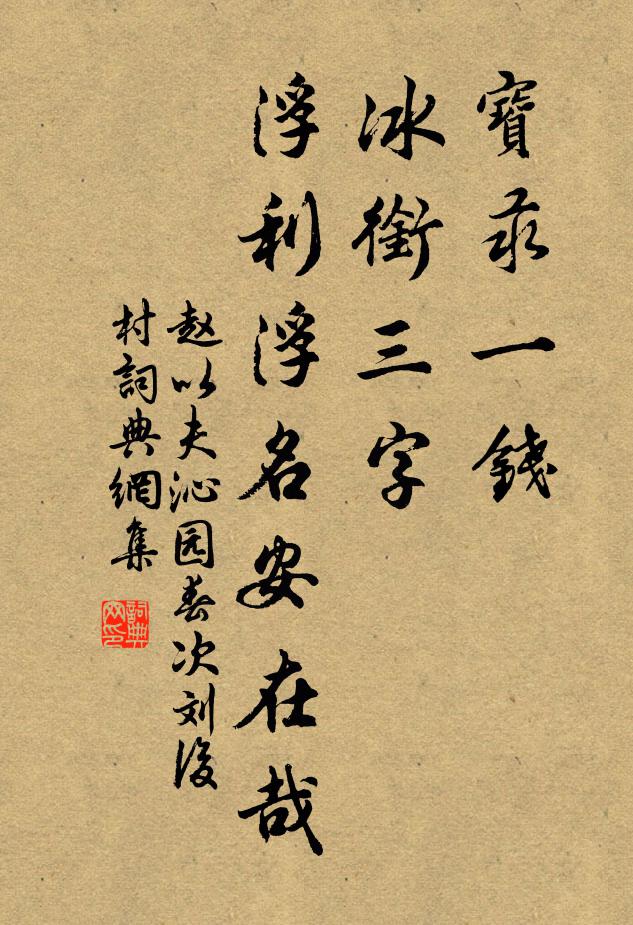 寶汞一錢
冰銜三字
浮利浮名安在哉
赵以夫沁园春次刘後
村詞典網集
詞典
网印